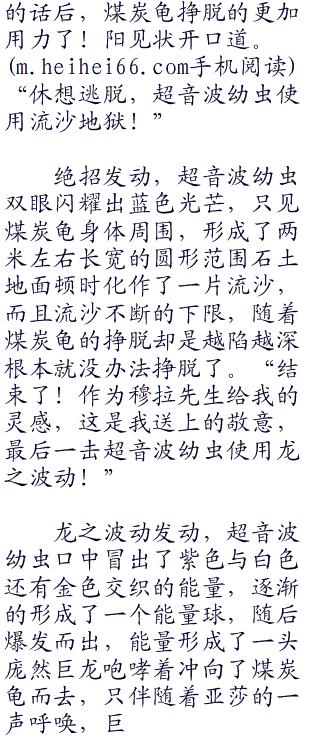 的话后，煤炭龟挣脱的更加
用力了！阳见状开口道。
(m.heihei66.com手机阅读)
“休想逃脱，超音波幼虫使
用流沙地狱！”
绝招发动，超音波幼虫
双眼闪耀出蓝色光芒，只见
煤炭龟身体周围，形成了两
米左右长宽的圆形范围石土
地面顿时化作了一片流沙，
而且流沙不断的下限，随着
煤炭龟的挣脱却是越陷越深
根本就没办法挣脱了。“结
束了！作为穆拉先生给我的
灵感，这是我送上的敬意，
最后一击超音波幼虫使用龙
之波动！”
龙之波动发动，超音波
幼虫口中冒出了紫色与白色
还有金色交织的能量，逐渐
的形成了一个能量球，随后
爆发而出，能量形成了一头
庞然巨龙咆哮着冲向了煤炭
龟而去，只伴随着亚莎的一
声呼唤，巨